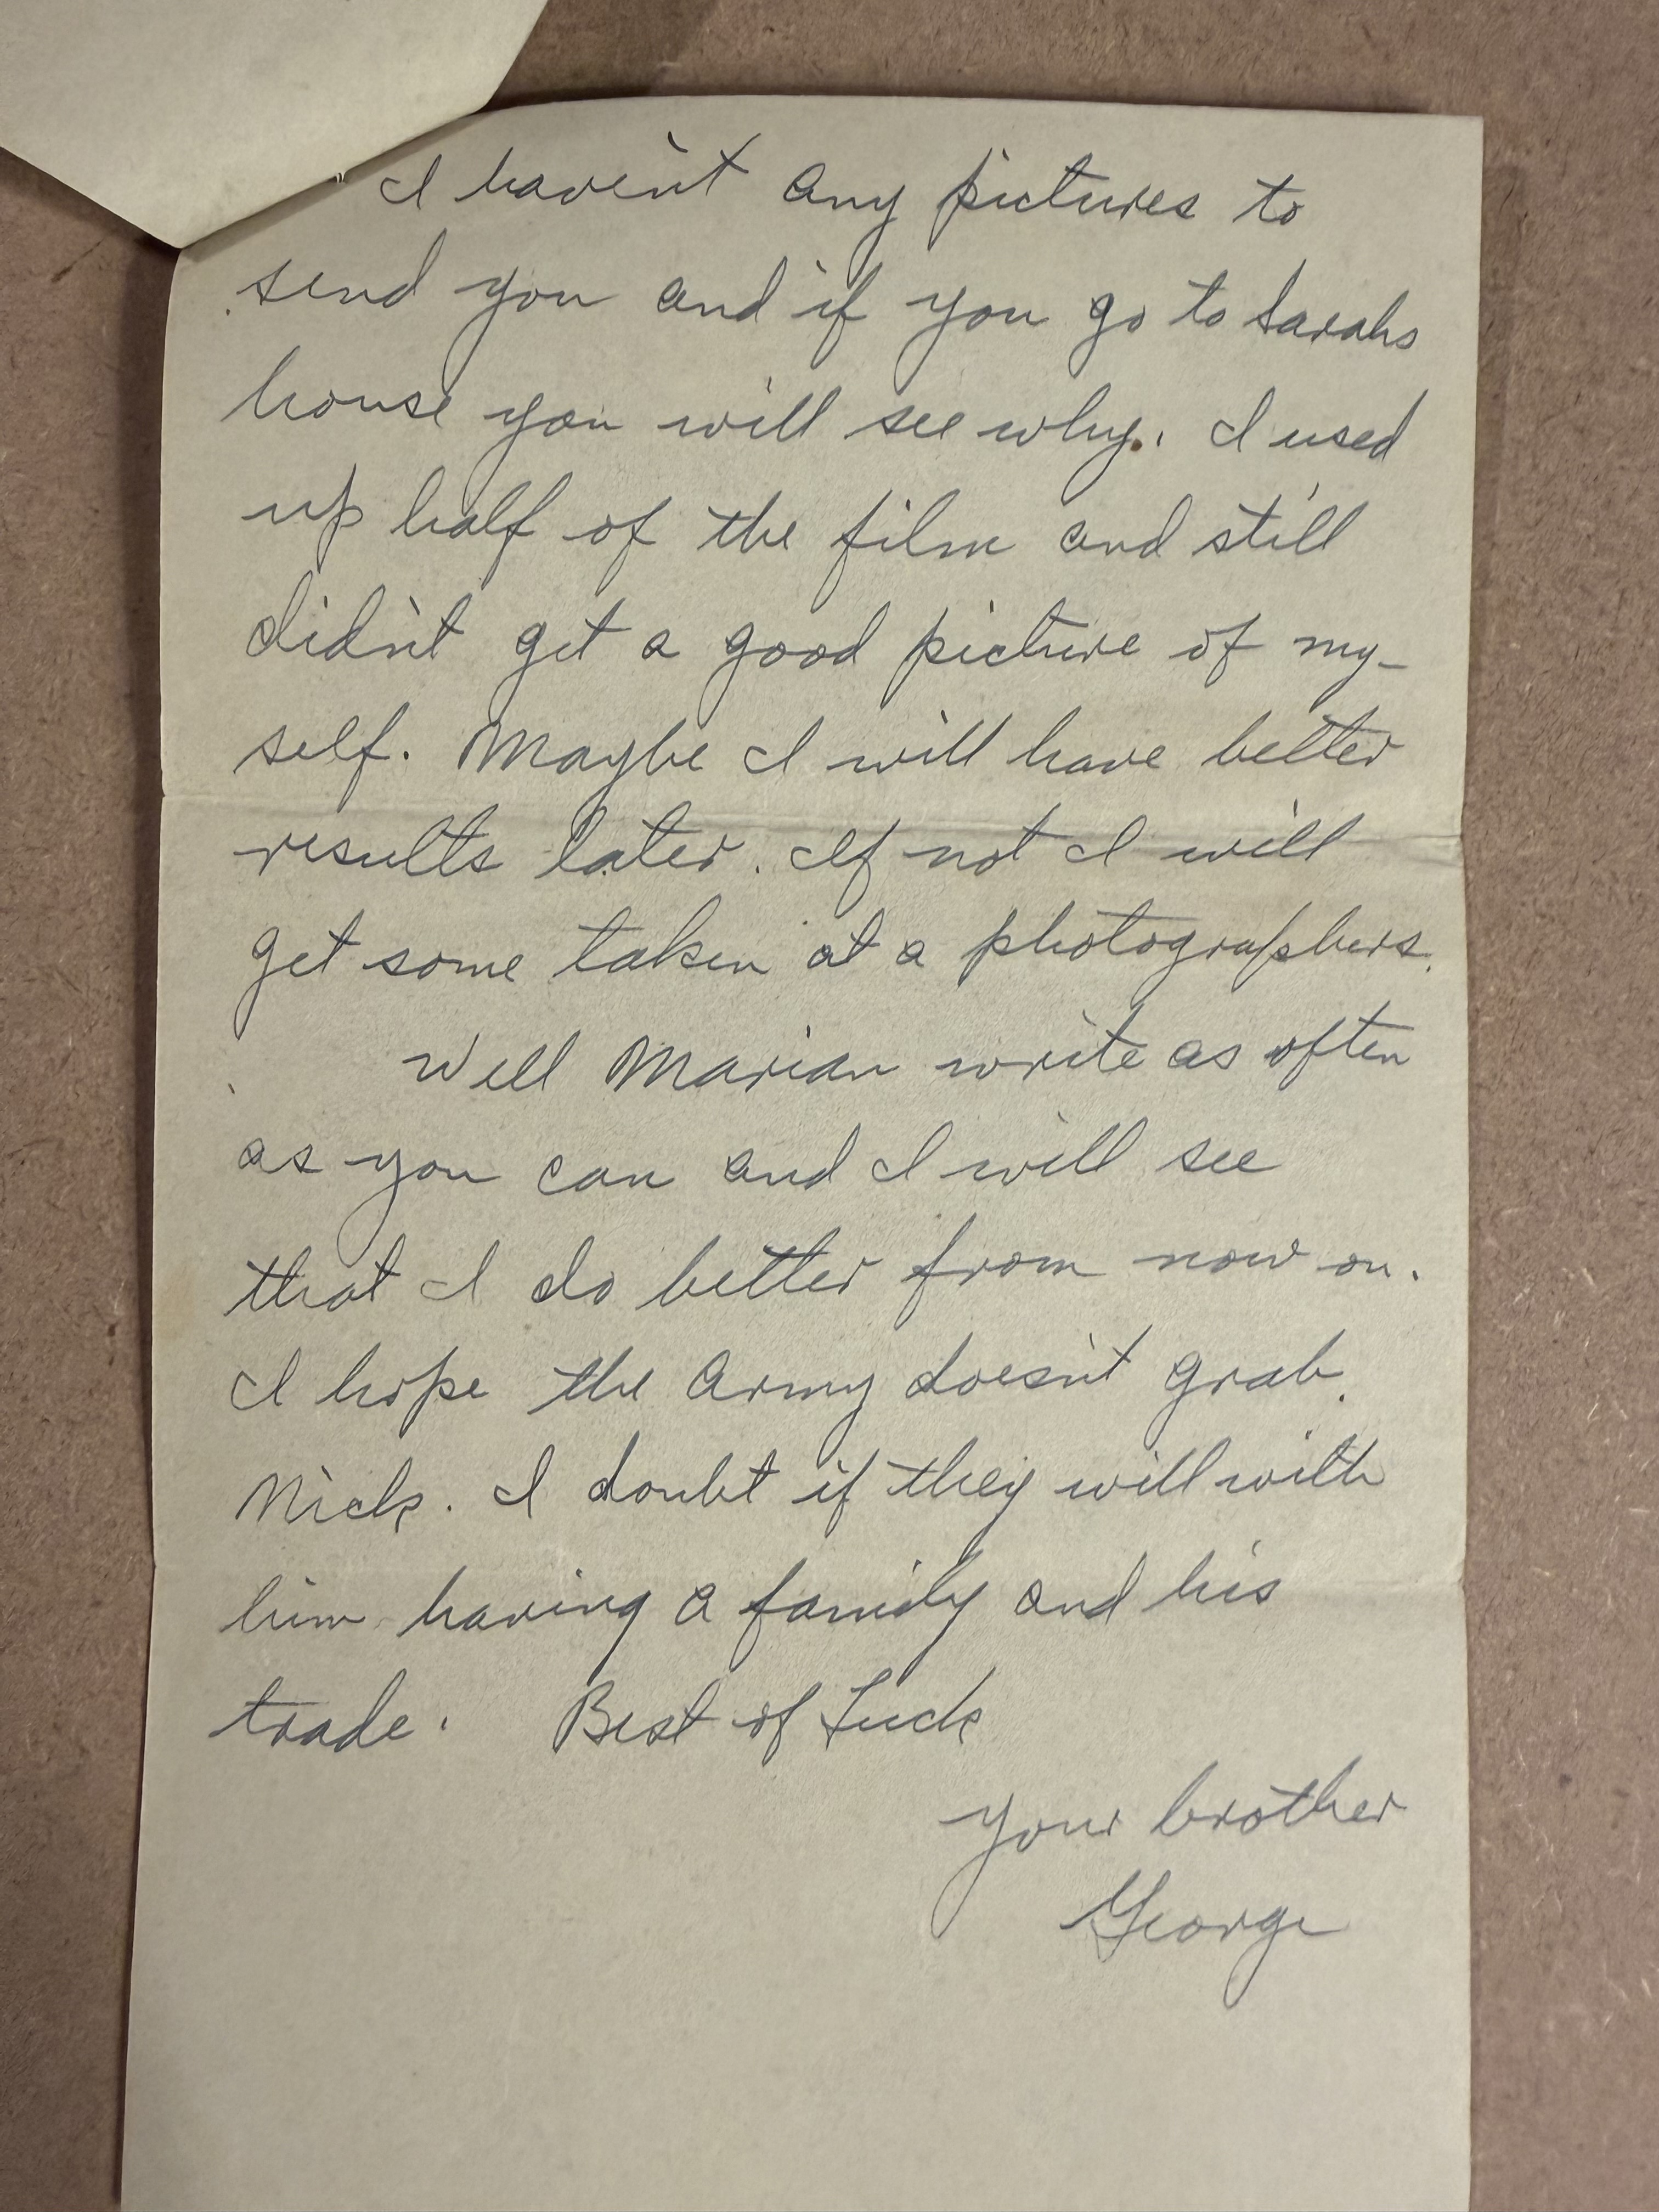 I haven't any pictures to
send you and if you go to Sarahs
house you will see why. I used
up half of the film and still
didn't get a good picture of my-
self. Maybe I will have better
results later. If not I will
get some taken at a photographers.
Well Marian write as often
as you can and I will see
that I do better from now on.
I hope the Army doesn't grab
Nick. I doubt if they will with
him having a family and his
trade. Best of Luck
Your brother
George